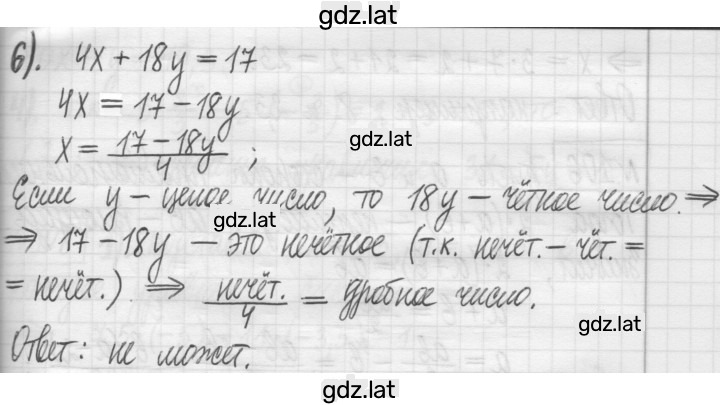 gdz.lat
6). 4x + 18y = 17
4x = 17 - 18y
x = \frac{17 - 18y}{4} ;
gdz.lat
Если y - целое число, то 18y - чётное число. ⇒
gdz.lat
⇒ 17 - 18y - это нечётное (т.к. нечёт. - чёт. =
= нечёт.) ⇒ \frac{нечёт.}{4} = дробное число.
gdz.lat
Ответ: не может.
gdz.lat